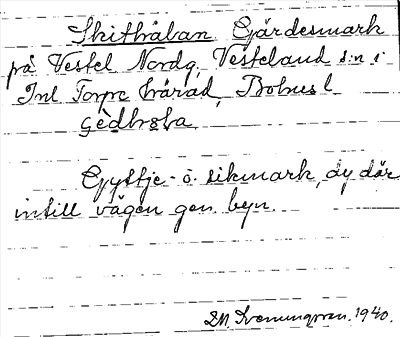 Skithålan Gärdesmark
på Vestel Nordg, Vesteland s:n i
Inl Torpe härad, Bohus l.
Gyttje- o. sikmark, dy där
intill vägen gen. byn.
1940.